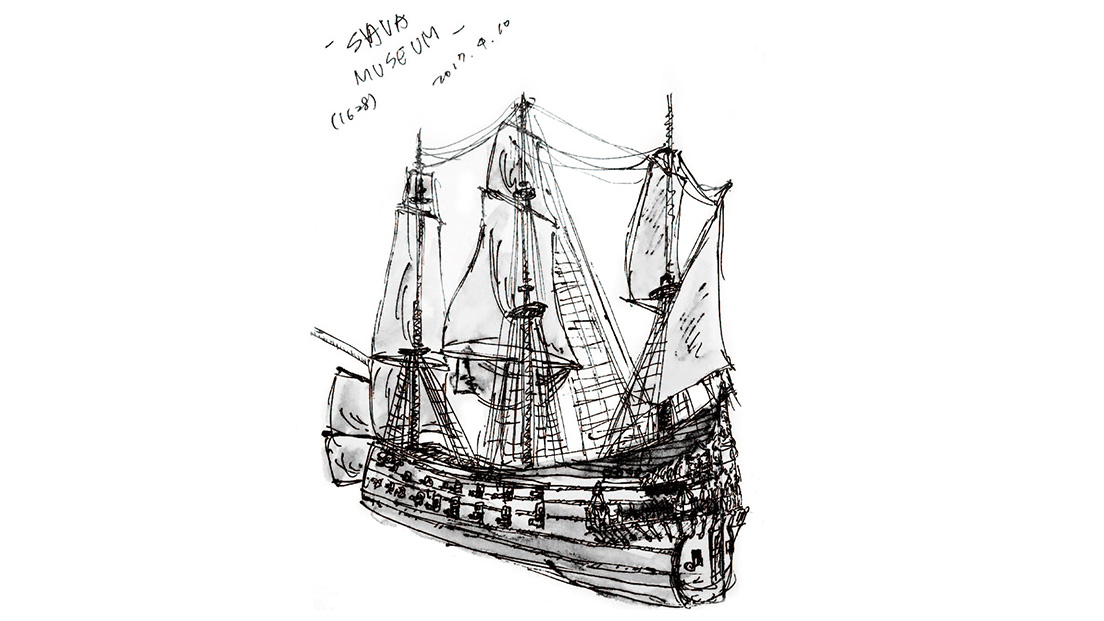 - SAVA
MUSEUM -
(1628)
2017.9.10